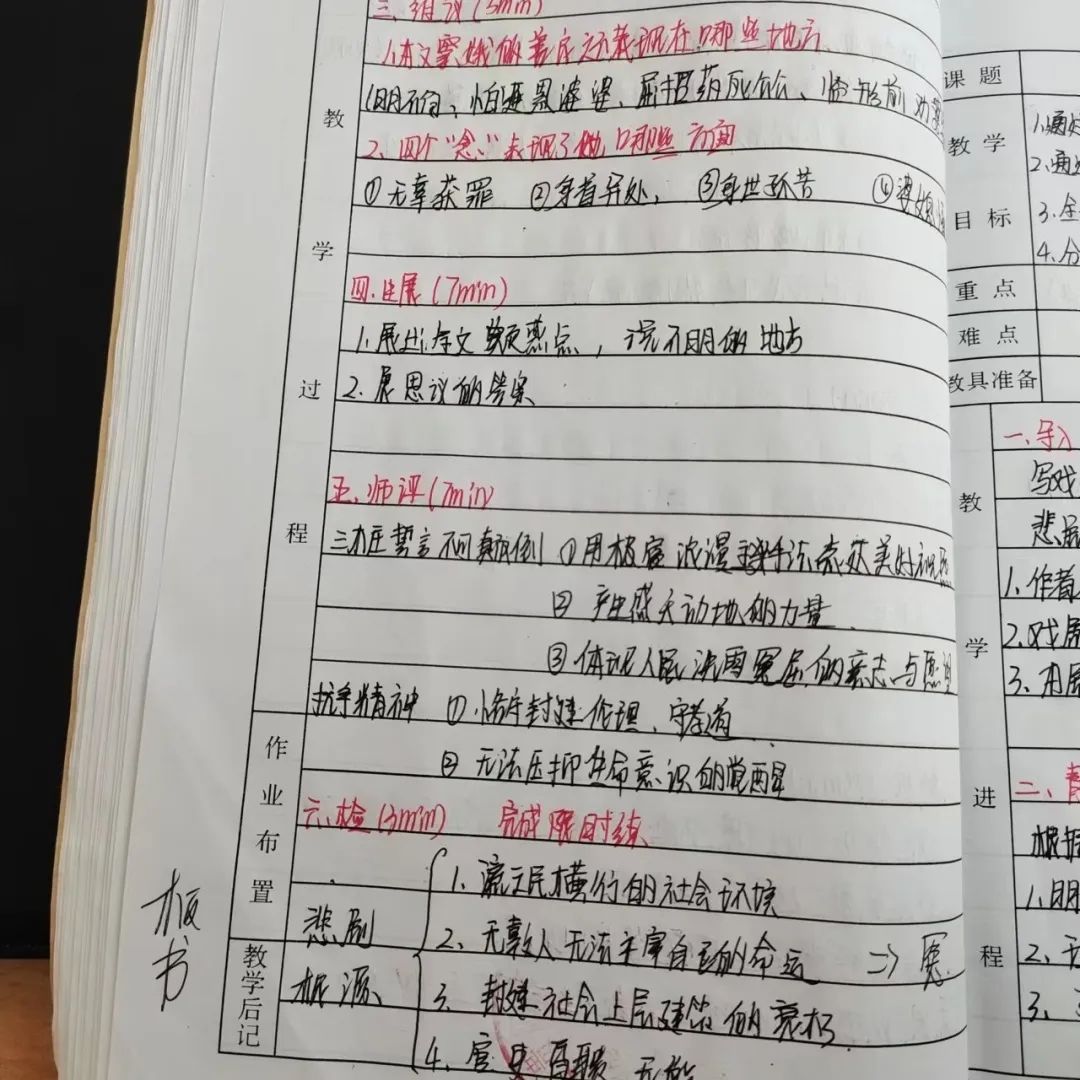 三、组议(5min)
1.本文窦娥的善良主要表现在哪些地方
怕连累婆婆、屈招药死公公、临刑前
2、四个“念”表现了她哪些方面
①无辜获罪 ②身首异处, ③身世孤苦 ④婆媳
四、生展(7min)
1.展出本文疑点,说不明的地方
2.展思议的答案
五、师评(7min)
三桩誓言不可颠倒 ①用极富浪漫
② 产生感天动地的力量
③体现人民洗雪冤屈的意志与愿望
抗争精神 ①恪守封建伦理、守孝道
②无法压抑生命意识的觉醒
六、检(3min) 完成限时练
悲剧
根源
1、流氓横行的社会环境
2、无数人无法主宰自己的命运 => 冤
3、封建社会上层建筑的衰朽
4、官吏 无能
教
学
过
程
作
业
布
置
教学后记
板书
课题
教学
目标
1.通过
2.通过
3.
4.分
重点
难点
教具准备
教
学
进
程
一、导入
写戏
悲剧
1.作者
2.戏剧
3.
二、
根据
1.
2、无
3、